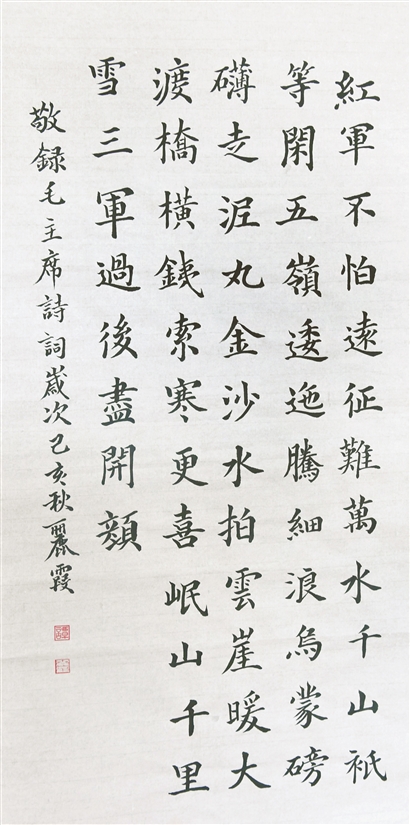 紅軍不怕遠征難萬水千山祇
等閑五嶺逶迤騰細浪烏蒙磅
礴走泥丸金沙水拍雲崖暖大
渡橋橫銕索寒更喜岷山千里
雪三軍過後盡開顔
敬録毛主席詩詞歲次己亥秋麗霞